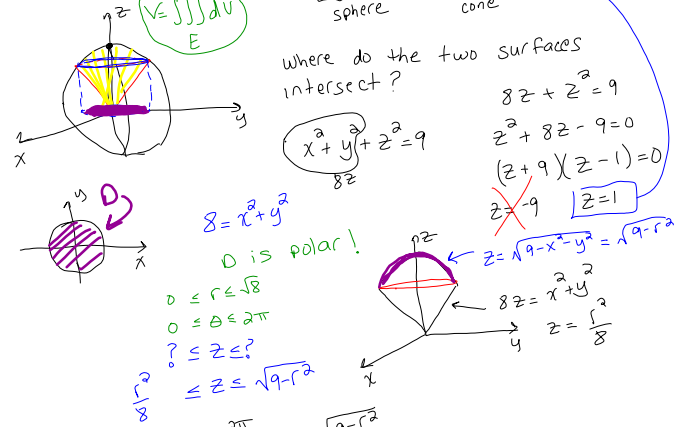 z
V=∫∫∫dV
E
sphere
cone
where do the two surfaces
intersect?
y
x
x²+y²+z²=9
8z
8z+z²=9
z²+8z-9=0
(z+9)(z-1)=0
z=-9
z=1
y
D
x
8=x²+y²
D is polar!
0≤r≤√8
0≤θ≤2π
?≤z≤?
r²/8 ≤z≤√9-r²
z
z=√9-x²-y²=√9-r²
8z=x²+y²
z=r²/8
y
x
2π
√9-r²